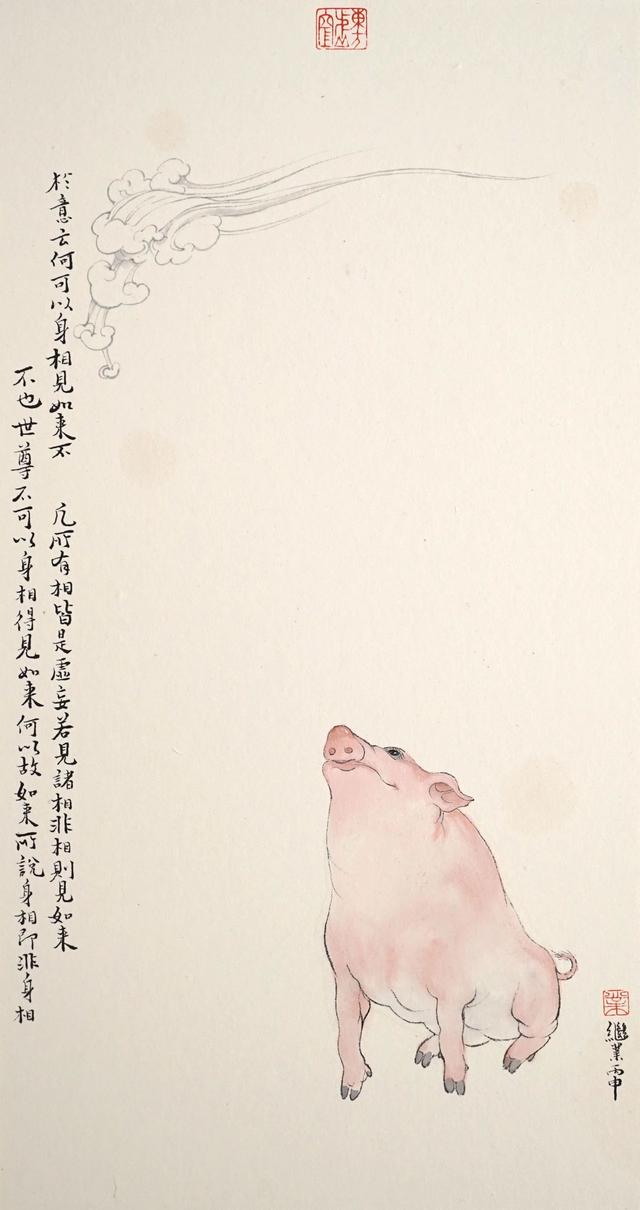 於意云何可以身相見如来不
不也世尊不可以身相得見如来何以故如来所說身相即非身相
凡所有相皆是虛妄若見諸相非相則見如来
繼業丙申